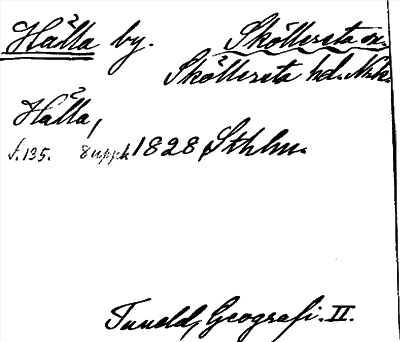 Hålla by. Sköllersta sn.
Sköllersta hd. Nke.
Hålla,
s. 195. 8 uppl. 1828 Sthlm.
Tuneld, Geografi. II.